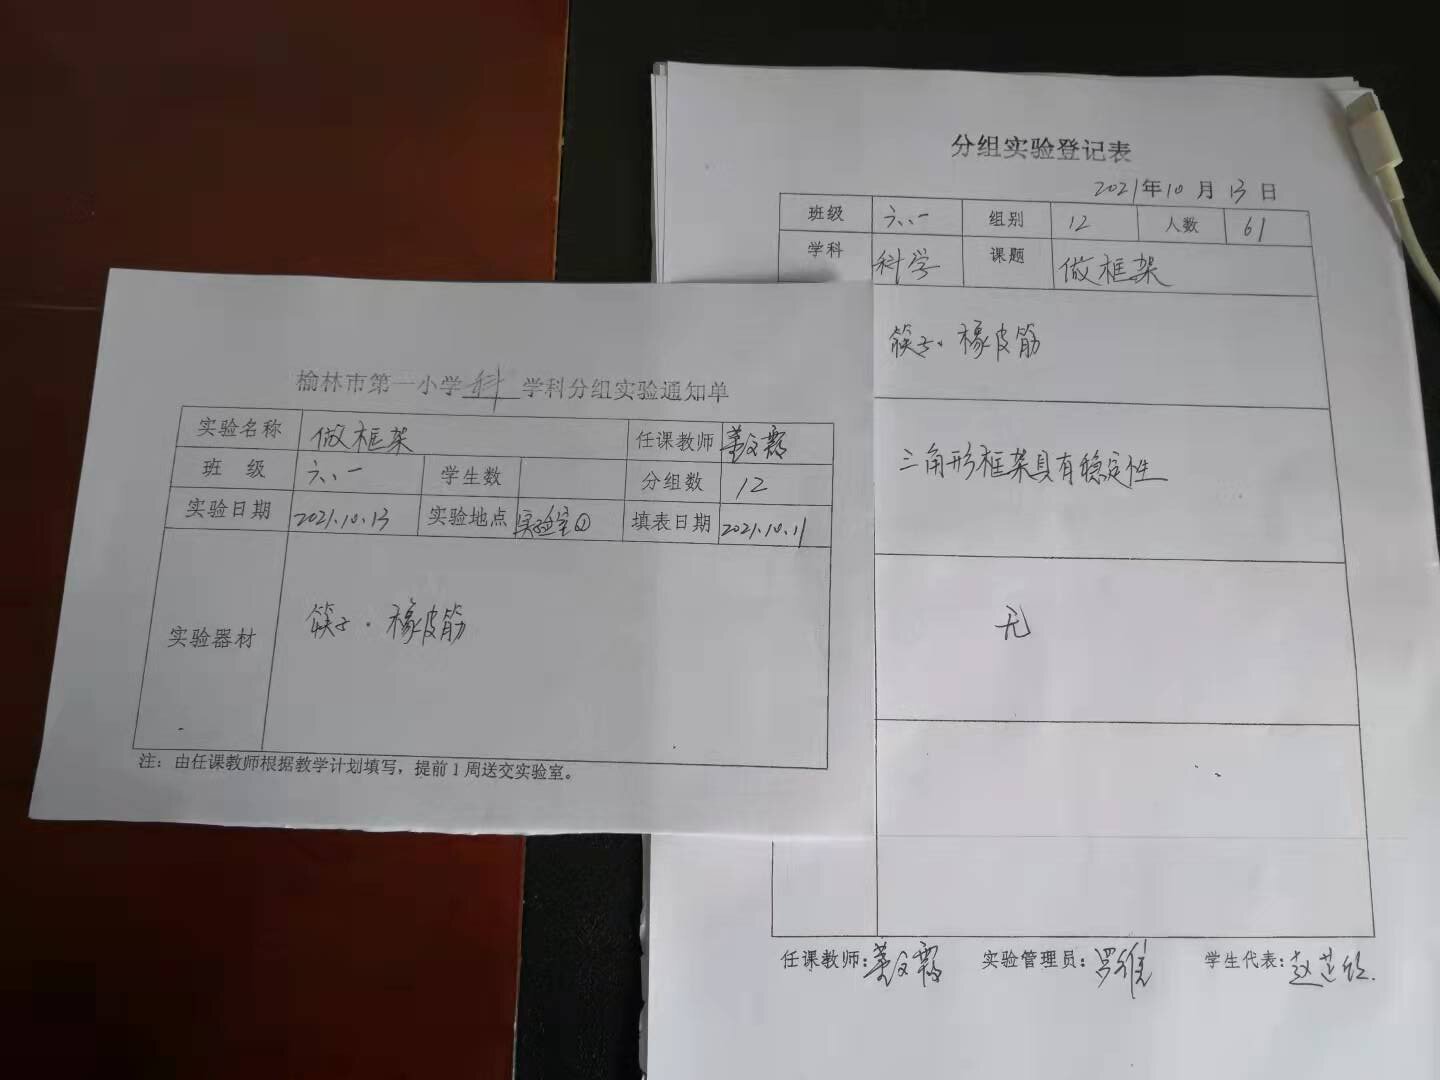 榆林市第一小学科学科分组实验通知单
实验名称 做框架 任课教师
班 级 六、一 学生数 分组数 12
实验日期 2021.10.13 实验地点 实验室② 填表日期 2021.10.11
实验器材 筷子、橡皮筋
注：由任课教师根据教学计划填写，提前1周送交实验室。
分组实验登记表
2021年10月13日
班级 六、一 组别 12 人数 61
学科 科学 课题 做框架
筷子、橡皮筋
三角形框架具有稳定性
无
任课教师： 实验管理员：罗维 学生代表：赵芷欣